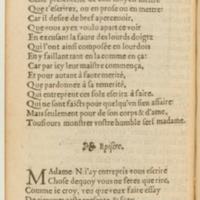 Que i'escriroy, ou en prose ou en mettre:
Car il desire de bref apercevoir,
Que vous ayez voulu apart ce voir
En excusant la faute des lourds doigtz
Qui l'ont ainsi composée en lourdois
En y faillant tant en la comme en ça:
Car par icy leur maistre commença,
Et pour autant à faute merité,
Que pardonnez à sa temerité,
Qui entreprent ces folz escriz à faire.
Qui ne sont faictz pour quelqu'un sien affaire:
Mais seulement pour de son corps & d'ame,
Tousiours monstrer vostre humble serf madame.
Epistre.
MAdame N. i'ay entrepris vous escrire
Chose dequoy vous ne ferez que rire,
Comme ie croy, veu que veux faire essay